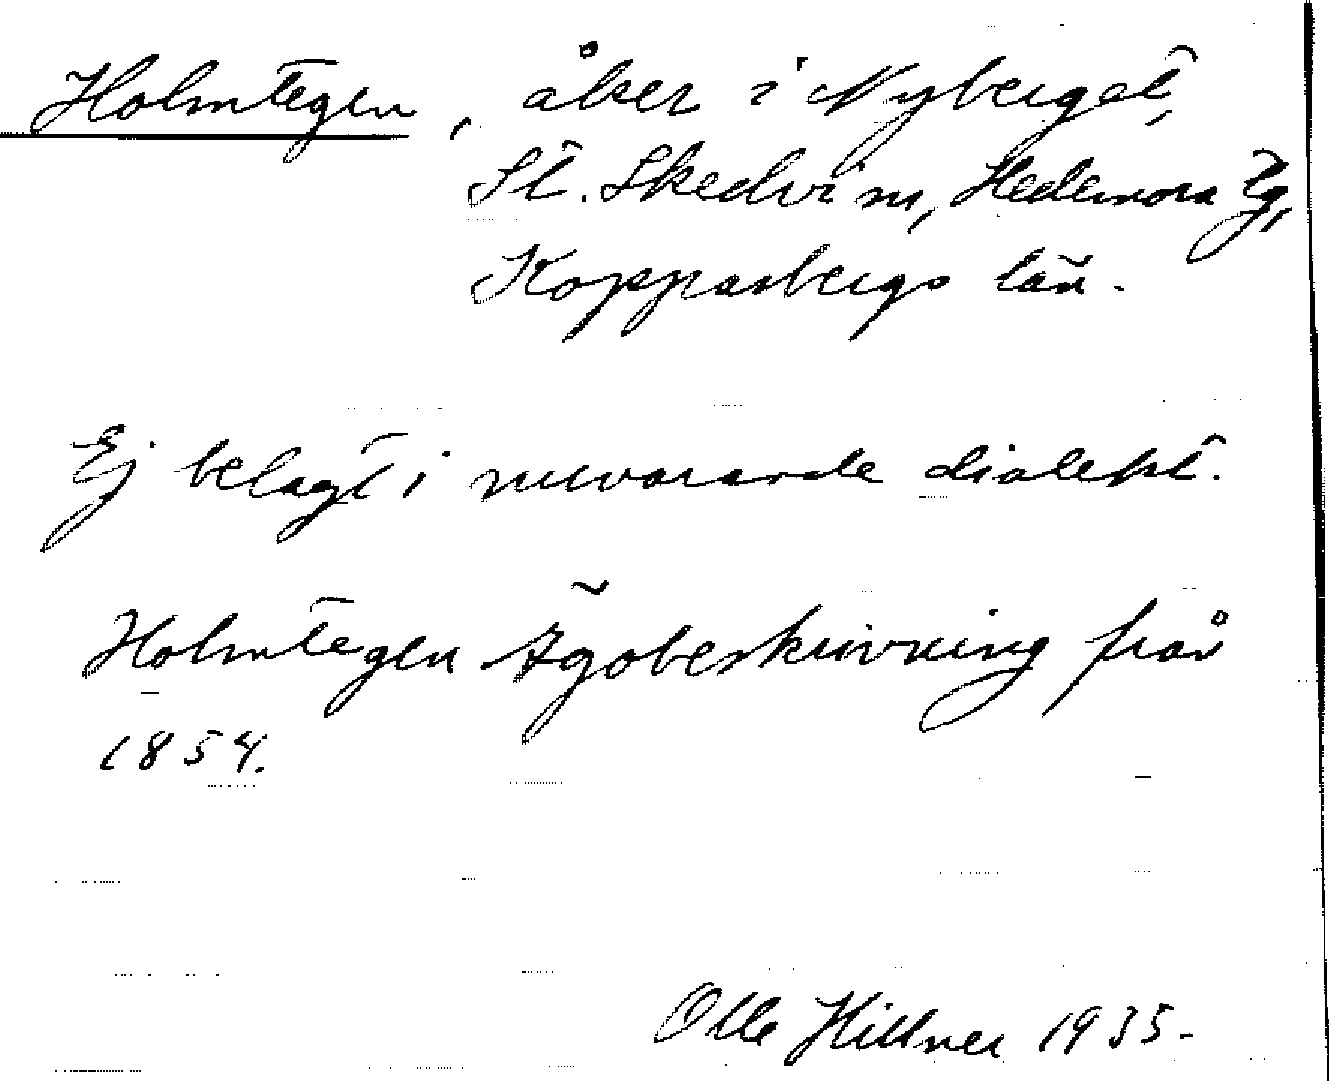 Holmtegen, åker i Nyberget,
St. Skedvi sn, Hedemora tg,
Kopparbergs län.
Ej belagt i nuvarande dialekt.
Holmtegen Ägobeskrivning från
1854.
Olle Hillner 1935.